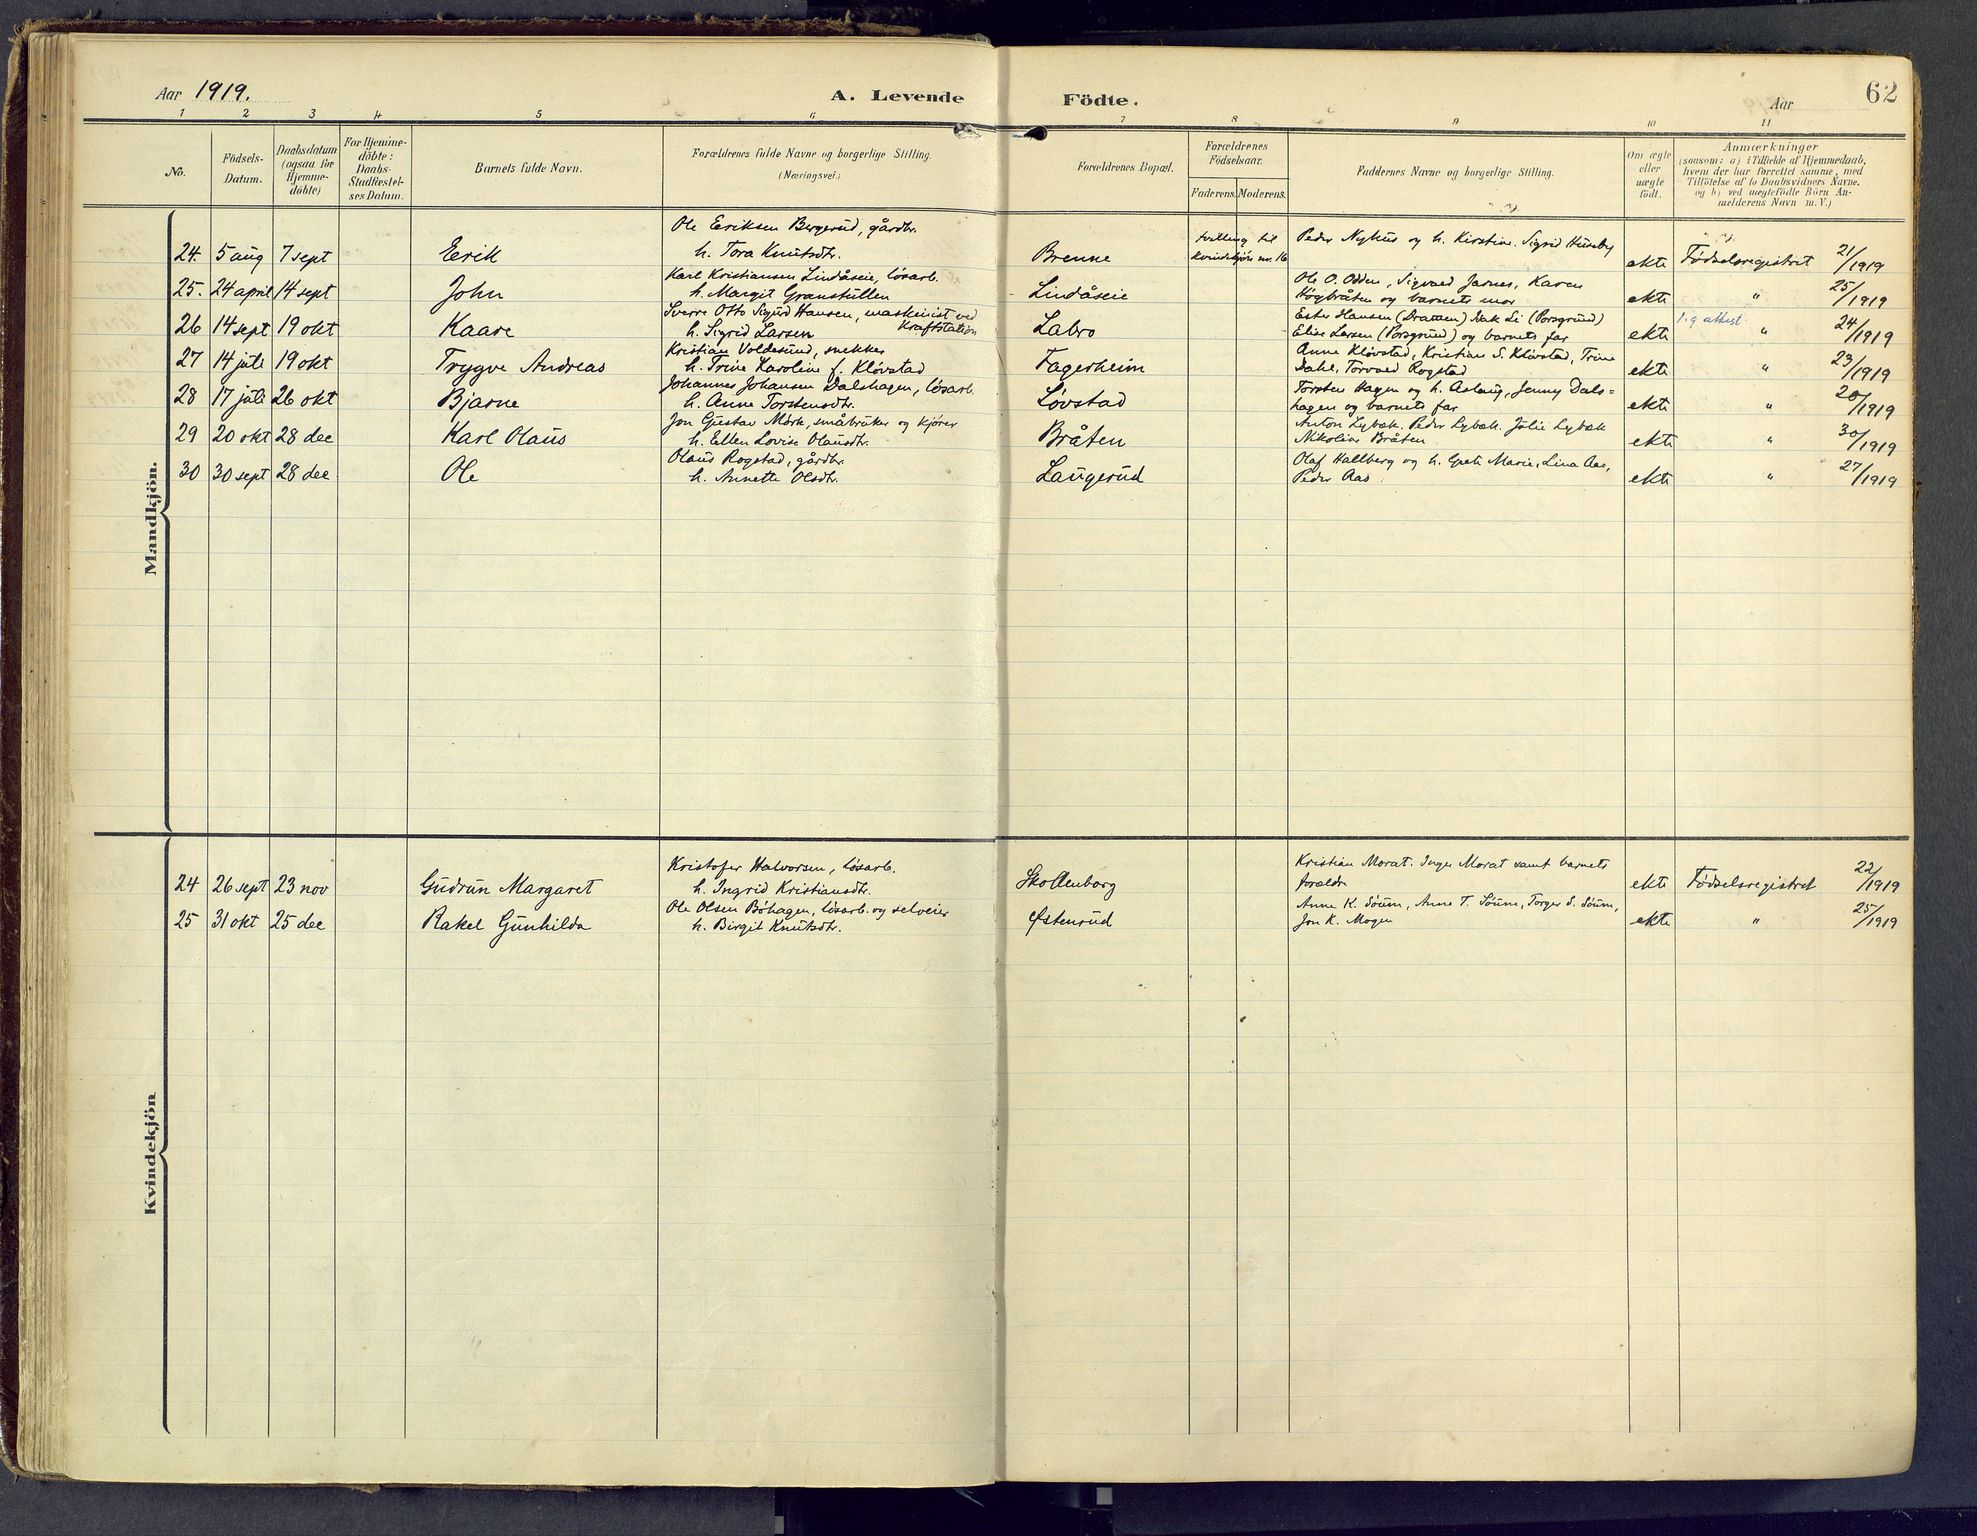 Aar 1919. A. Levende Födte. Aar 62
1 2 3 4 5 6 7 8 9 10 11
No. Födsels-Datum. Daabsdatum (ogsaa for Hjemme-döbte) For Hjemme-döbte: Daabs-Stadfæstel-ses Datum. Barnets fulde Navn. Forældrenes fulde Navne og borgerlige Stilling. (Næringsvei.) Forældrenes Bopæl. Forældrenes Födselsaar. Faderens. Moderens. Faddernes Navne og borgerlige Stilling. Om ægte eller uægte födt. Anmærkninger (saasom: a) i Tilfælde af Hjemmedaab, hvem der har forrettet samme, med Tilföielse af to Daabsvidners Navne, og b) ved uegtefödte Börn An-melderens Navn m. V.)
Mandkjön.
Ole Eriksen Bergerud, gårdbr.
24. 5 aug 7 sept Erik h. Tora Knutsdtr. Brenne tvilling til kvindekjön nr. 16 Peder Nyhus og h. Kirstine. Sigrid Huseby ekte Födselsregistret 21/1919
Karl Kristiansen Lindåseie, lösarb.
25. 24 april 14 sept John h. Margit Granstullen Lindåseie Ole O. Odden, Sigvald Jarnes, Karen Högbråten og barnets mor ekte " 25/1919
Sverre Otto Sigurd Hansen, maskinist ved Kraftstation
26 14 sept 19 okt Kaare h. Sigrid Larsen Labro Ester Hansen (Drammen) Nak Li (Porsgrund) Elise Larsen (Porsgrund) og barnets far ekte 1.g attest " 24/1919
Kristian Voldesund, snekker
27 14 juli 19 okt Trygve Andreas h. Trine Karoline f. Kløvstad Fagerheim Anne Kløvstad, Kristian S. Kløvstad, Trine Dahl, Torvald Rogstad ekte " 23/1919
Johannes Johansen Dalshagen, lösarb.
28 17 juli 26 okt Bjarne h. Anne Torstensdtr. Løvstad Torsten Hagen og h. Aslaug, Jenny Dals=hagen og barnets far ekte " 20/1919
Jon Gustav Mörk, småbruker og kjörer
29 20 okt 28 dec Karl Olaus h. Ellen Lovise Olausdtr. Bråten Anton Lybæk. Peder Lybæk. Julie Lybæk Nikoline Bråten ekte " 30/1919
Olaus Rogstad, gårdbr.
30 30 sept 28 dec Ole h. Annette Olsdtr. Laugerud Olaf Hallberg og h. Grete Marie, Lina Aas, Peder Aas ekte " 27/1919
Kvindekjön
Kristofer Halvorsen, lösarb.
24 26 sept 23 nov Gudrun Margaret h. Ingrid Kristiansdtr. Skollenborg Kristian Morat. Inger Morat samt barnets foreldre ekte Födselsregistret 22/1919
Ole Olsen Böhagen, lösarb. og selveier
25 31 okt 25 dec Rakel Gunhilda h. Birgit Knutsdtr. Østenrud Anne K. Söum, Anne T. Söum, Torger S. Söum, Jon K. Mogen ekte " 25/1919